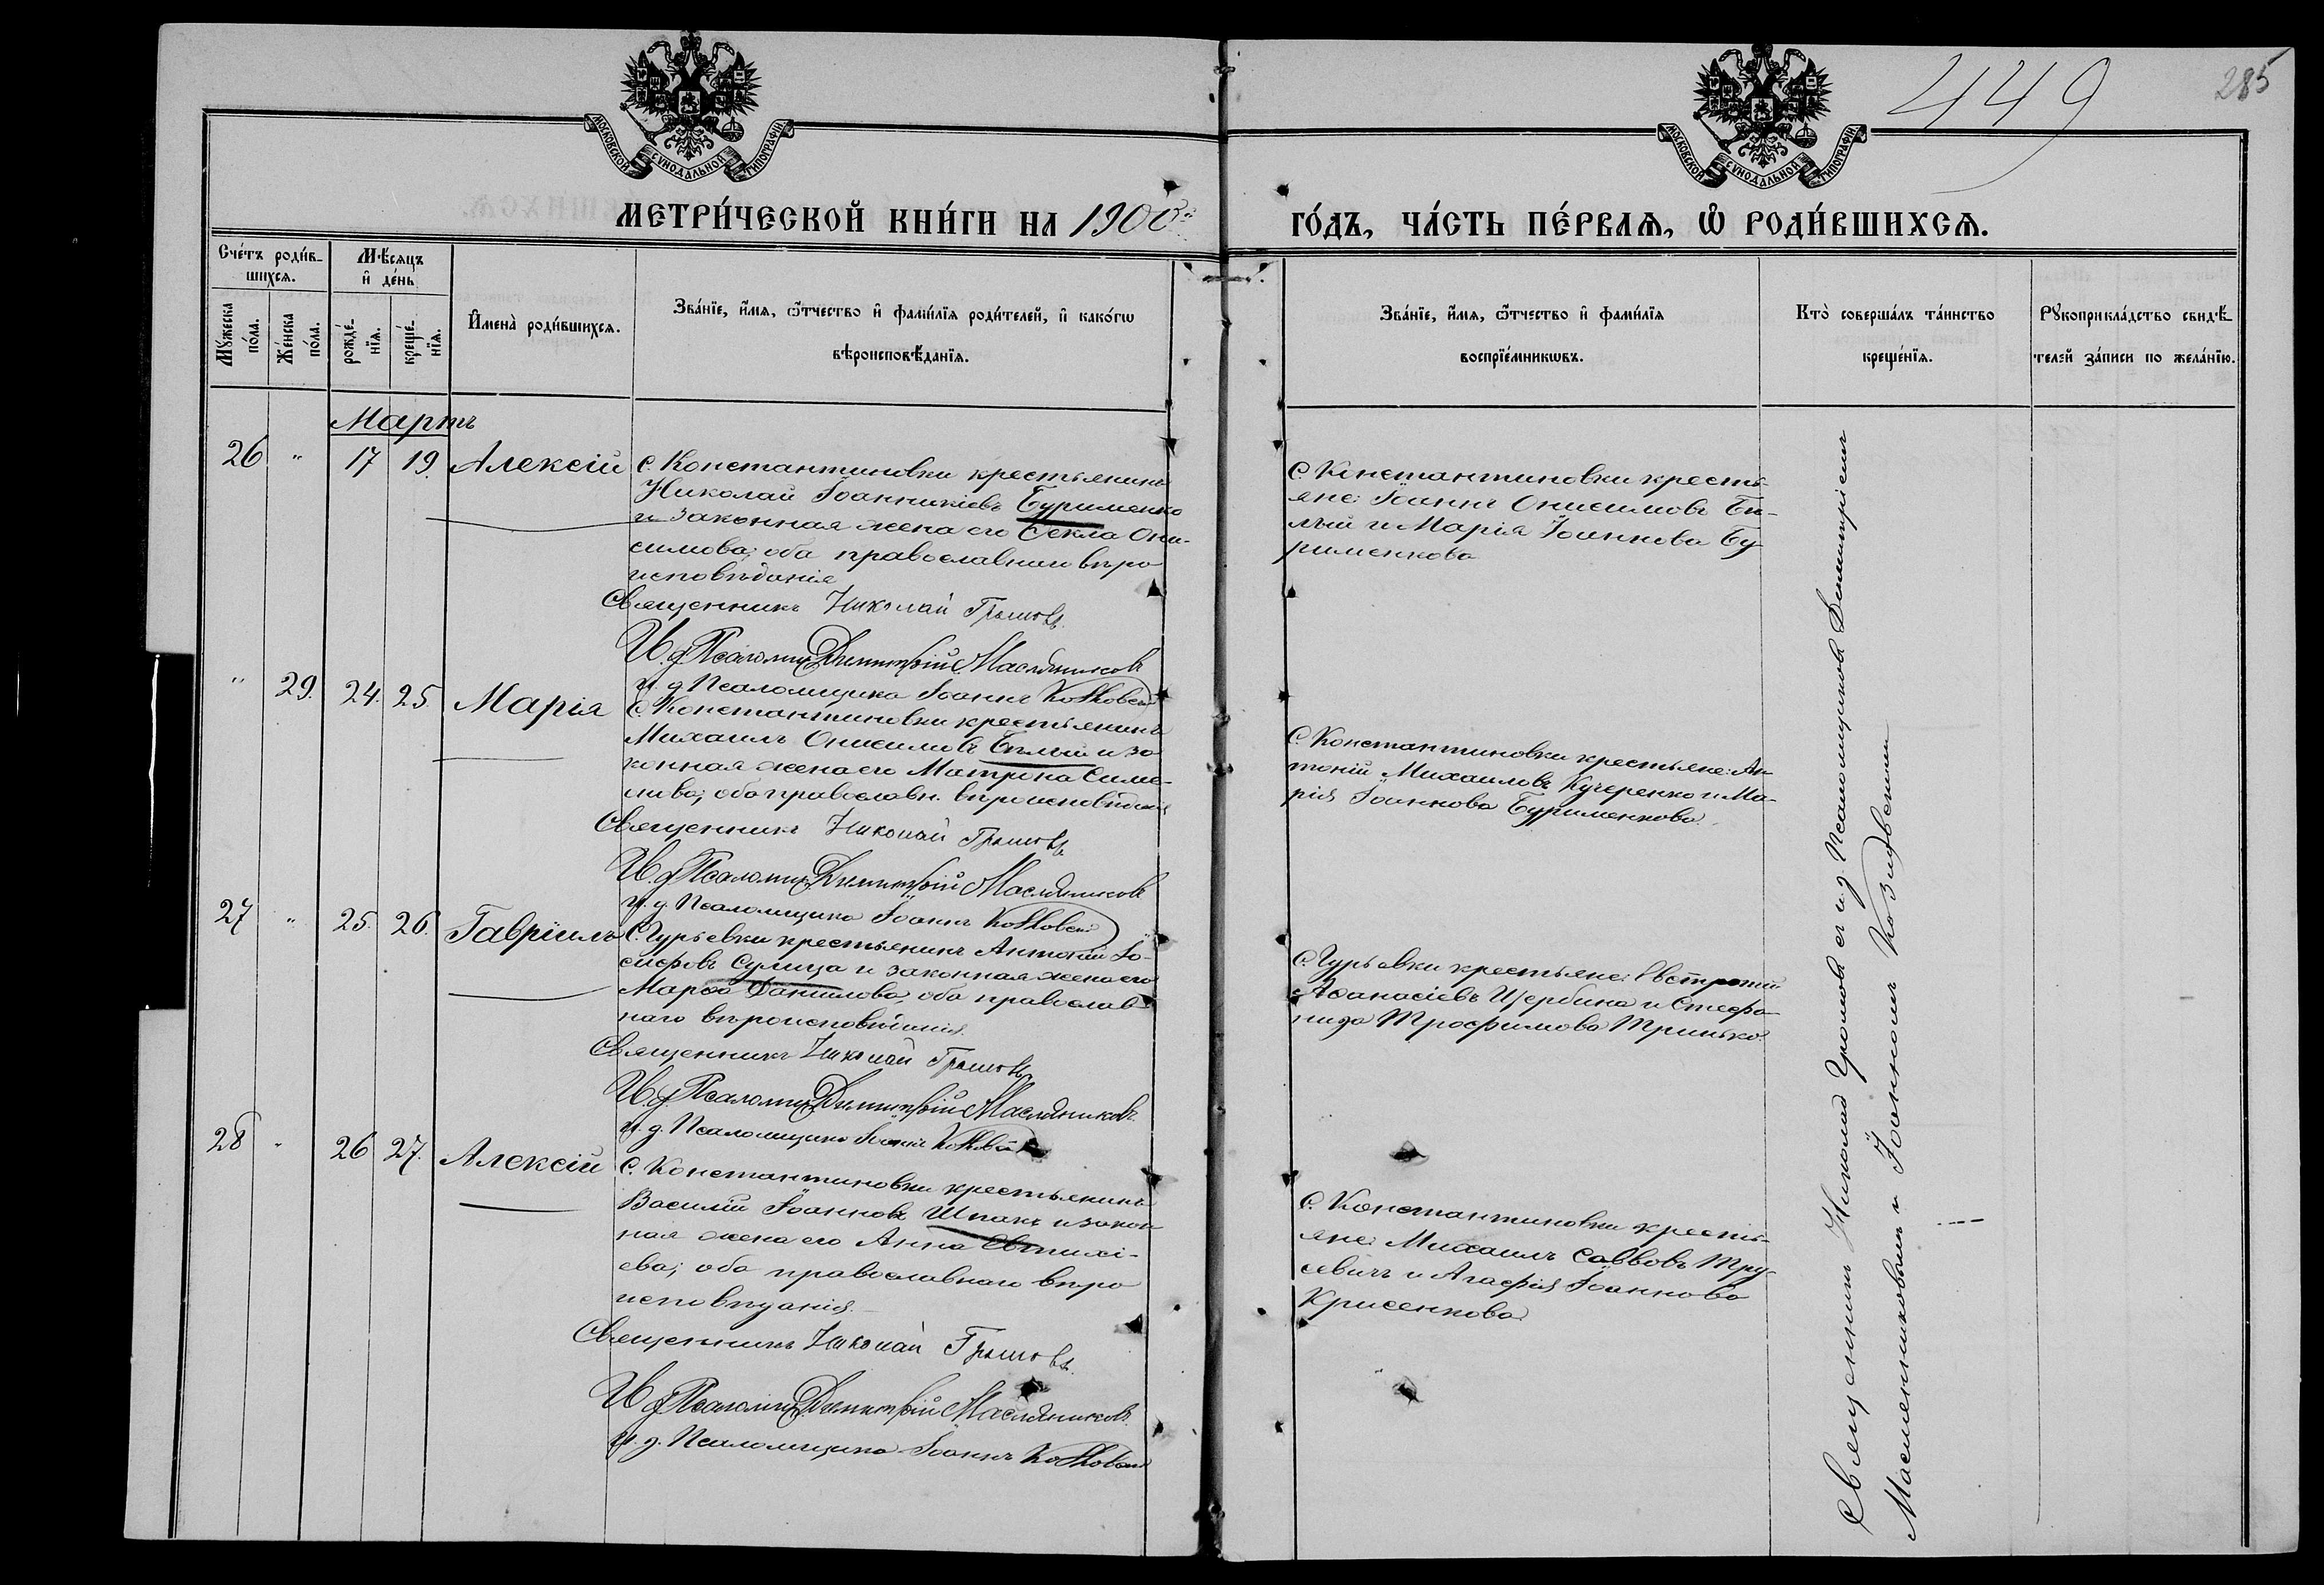 449
285
МОСКОВСКОЙ СѴНОДАЛЬНОЙ ТИПОГРАФІИ
МОСКОВСКОЙ СѴНОДАЛЬНОЙ ТИПОГРАФІИ
МЕТРИ́ЧЕСКОЙ КНИ́ГИ НА 1900й
ГО́ДЪ, ЧА́СТЬ ПЕ́РВАѦ, Ѽ РОДИ́ВШИХСѦ.
Сче́тъ роди́в-
шихсѧ.
Мѣ́сѧцъ
и҆ де́нь
Мꙋ́жеска
по́ла.
Же́нска
по́ла.
рожде́-
нїѧ.
креще́-
нїѧ.
И҆мена̀ роди́вшихсѧ.
Зва́нїе, и҆́мѧ, ѻ҆́тчество и҆ фами́лїѧ роди́телей, и҆ како́гѡ
вѣроисповѣ́данїѧ.
Зва́нїе, и҆́мѧ, ѻ҆́тчество и҆ фами́лїѧ
воспрїе́мникѡвъ.
Кто̀ соверша́лъ та́инство
креще́нїѧ.
Рꙋкоприкла́дство свидѣ́-
телей за́писи по жела́нїю.
Мартъ
26 " 17 19. Алексій
с. Константиновки крестьянинъ
Николай Іоанникіевъ Бурименко
и законная жена его Ѳекла Они-
симова; оба православнаго вѣро
исповѣданія
Священникъ Николай Громовъ.
И. д. Псаломщ. Димитрій Маслянниковъ
и. д. Псаломщика Іоаннъ
С. Константиновки кресть-
яне: Іоаннъ Онисимовъ Бѣ-
лый и Марія Іоаннова Бу-
рименкова
" 29. 24. 25. Марія
С. Константиновки крестьянинъ
Михаилъ Онисимовъ Бѣлый и за-
конная жена его Матрона Симо-
нова; оба православн. вѣроисповѣданія
Священникъ Николай Громовъ
И. д. Псаломщ. Димитрій Маслянниковъ
и. д. Псаломщика Іоаннъ
С. Константиновки крестьяне: Ан-
тоній Михаиловъ Кучеренко и Ма-
рія Іоаннова Бурименкова.
27 " 25. 26. Гавріилъ
С. Гурьевки крестьянинъ Антоній Іо-
сифовъ Сулима и законная жена его
Марѳа Даніилова, оба православ-
наго вѣроисповѣданія.
Священникъ Николай Громовъ
И. д. Псаломщ. Димитрій Маслянниковъ
и. д. Псаломщика Іоаннъ
С. Гурьевки крестьяне: Евстратій
Аѳанасіевъ Щербина и Стефа-
нида Трофимова Тринько.
28 " 26 27. Алексій
С. Константиновки крестьянинъ
Василій Іоанновъ Шпакъ и закон-
ная жена его Анна Евтихі-
ева; оба православнаго вѣро
исповѣданія.
Священникъ Николай Громовъ.
И. д. Псаломщ. Димитрій Маслянниковъ
и. д. Псаломщика Іоаннъ
С. Константиновки кресть-
яне: Михаилъ Саввовъ Тру-
севичъ и Агафія Іоаннова
Крисенкова
Священникъ Николай Громовъ съ и. д. Псаломщиковъ Димитріемъ
Маслянниковымъ и Іоанномъ